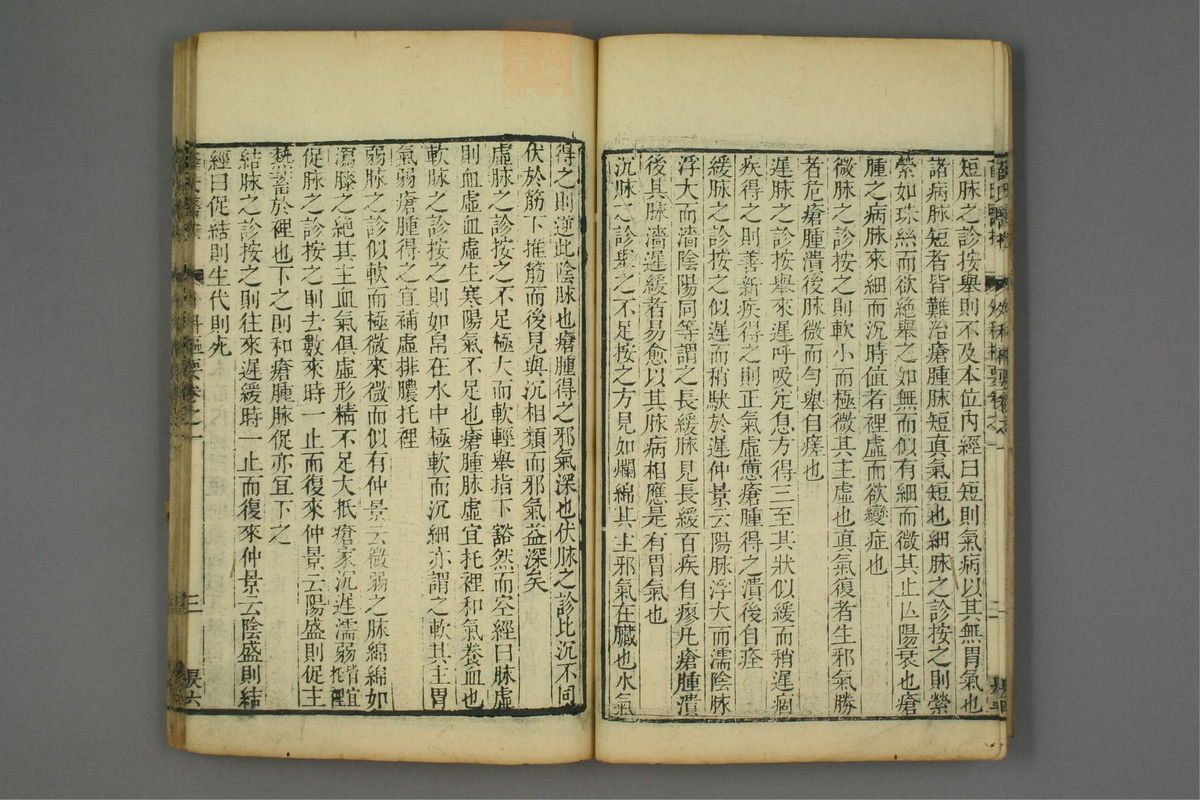 短脉之診按舉則不及本位内經曰短則氣病以其無胃氣也
諸病脉短者皆難治瘡腫脉短真氣短也細脉之診按之則縈
縈如珠絲而欲絶舉之如無而似有細而微其止亡陽衰也瘡
腫之病脉來細而沉時值者裡虛而欲變症也
微脉之診按之則軟小而極微其主虛也真氣復者生邪氣勝
者危瘡腫潰後脉微而勻舉自瘥也
遲脉之診按舉來遲呼吸定息方得三至其狀似緩而稍遲痼
疾得之則善新疾得之則正氣虛憊瘡腫得之潰後自痊
緩脉之診按之似遲而稍駃於遲仲景云陽脉浮大而濡陰脉
浮大而濡陰陽同等謂之長緩脉見長緩百疾自瘳凡瘡腫潰
後其脉濇遲緩者易愈以其脉病相應是有胃氣也
沉脉之診舉之不足按之方見如爛綿其主邪氣在臟也水氣
得之則逆此陰脉也瘡腫得之邪氣深也伏脉之診比沉不同
伏於筋下推筋而後見與沉相類而邪氣益深矣
虛脉之診按之不足極大而軟輕舉指下豁然而空經曰脉虛
則血虛血虛生寒陽氣不足也瘡腫脉虛宜托裡和氣養血也
軟脉之診按之則如帛在水中極軟而沉細亦謂之軟其主胃
氣弱瘡腫得之宜補虛排膿托裡
弱脉之診似軟而極微來微而似有仲景云微弱之脉綿綿如
瀉漆之絶其主血氣俱虛形精不足大抵瘡家沉遲濡弱皆宜托裡
促脉之診按之則去數來時一止而復來仲景云陽盛則促主
熱蓄於裡也下之則和瘡腫脉促亦宜下之
結脉之診按之則往來遲緩時一止而復來仲景云陰盛則結
經曰促結則生代則死
三